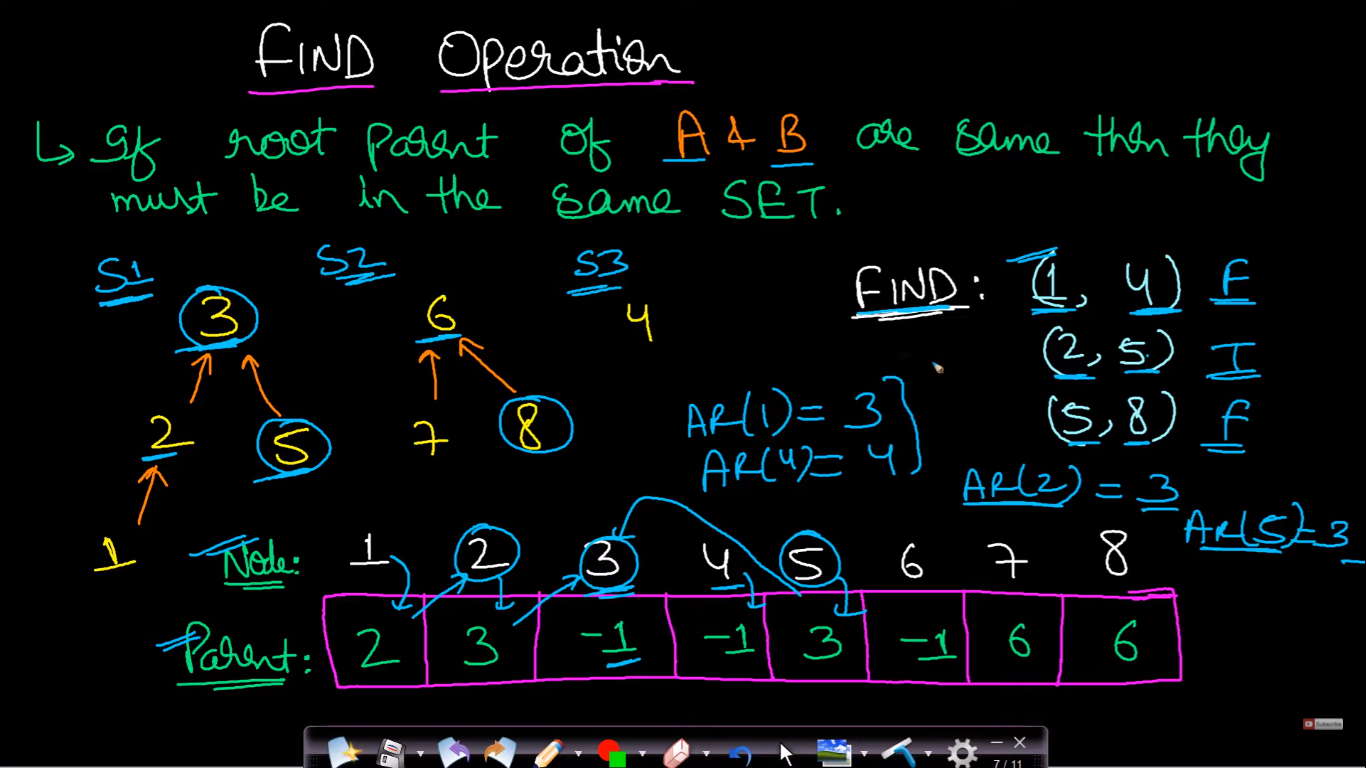 FIND Operation
↳ If root parent of A & B are same then they
must be in the same SET.
S1 S2 S3
3 6 4
2 5 7 8
1
FIND: (1, 4) F
(2, 5) T
(5, 8) F
AR(1) = 3
AR(4) = 4
AR(2) = 3
AR(5) = 3
Node: 1 2 3 4 5 6 7 8
Parent: 2 3 -1 -1 3 -1 6 6
Subscribe
7 / 11